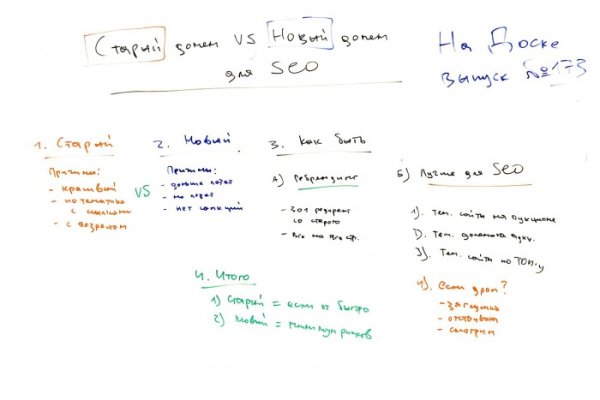 Старый домен VS Новый домен
для SEO
На Доске
выпуск №173
1. Старый
Причины:
- красивый
- по тематике
с ссылками
- с возрастом
VS
2. Новый
Причины:
- дольше
- не
- нет санкций
3. Как быть
А) Ребрендинг
- 301 редирект
со старого
- все на все стр.
Б) Лучше для SEO
1). Тем. сайты на аукционе
2). Тем. домена аукц.
3). Тем. сайты по ТОП-у
4). если дроп?
- заглушка
- отстояться
- смотрим
4. Итого
1) Старый = если оч быстро
2) Новый = минимум рисков